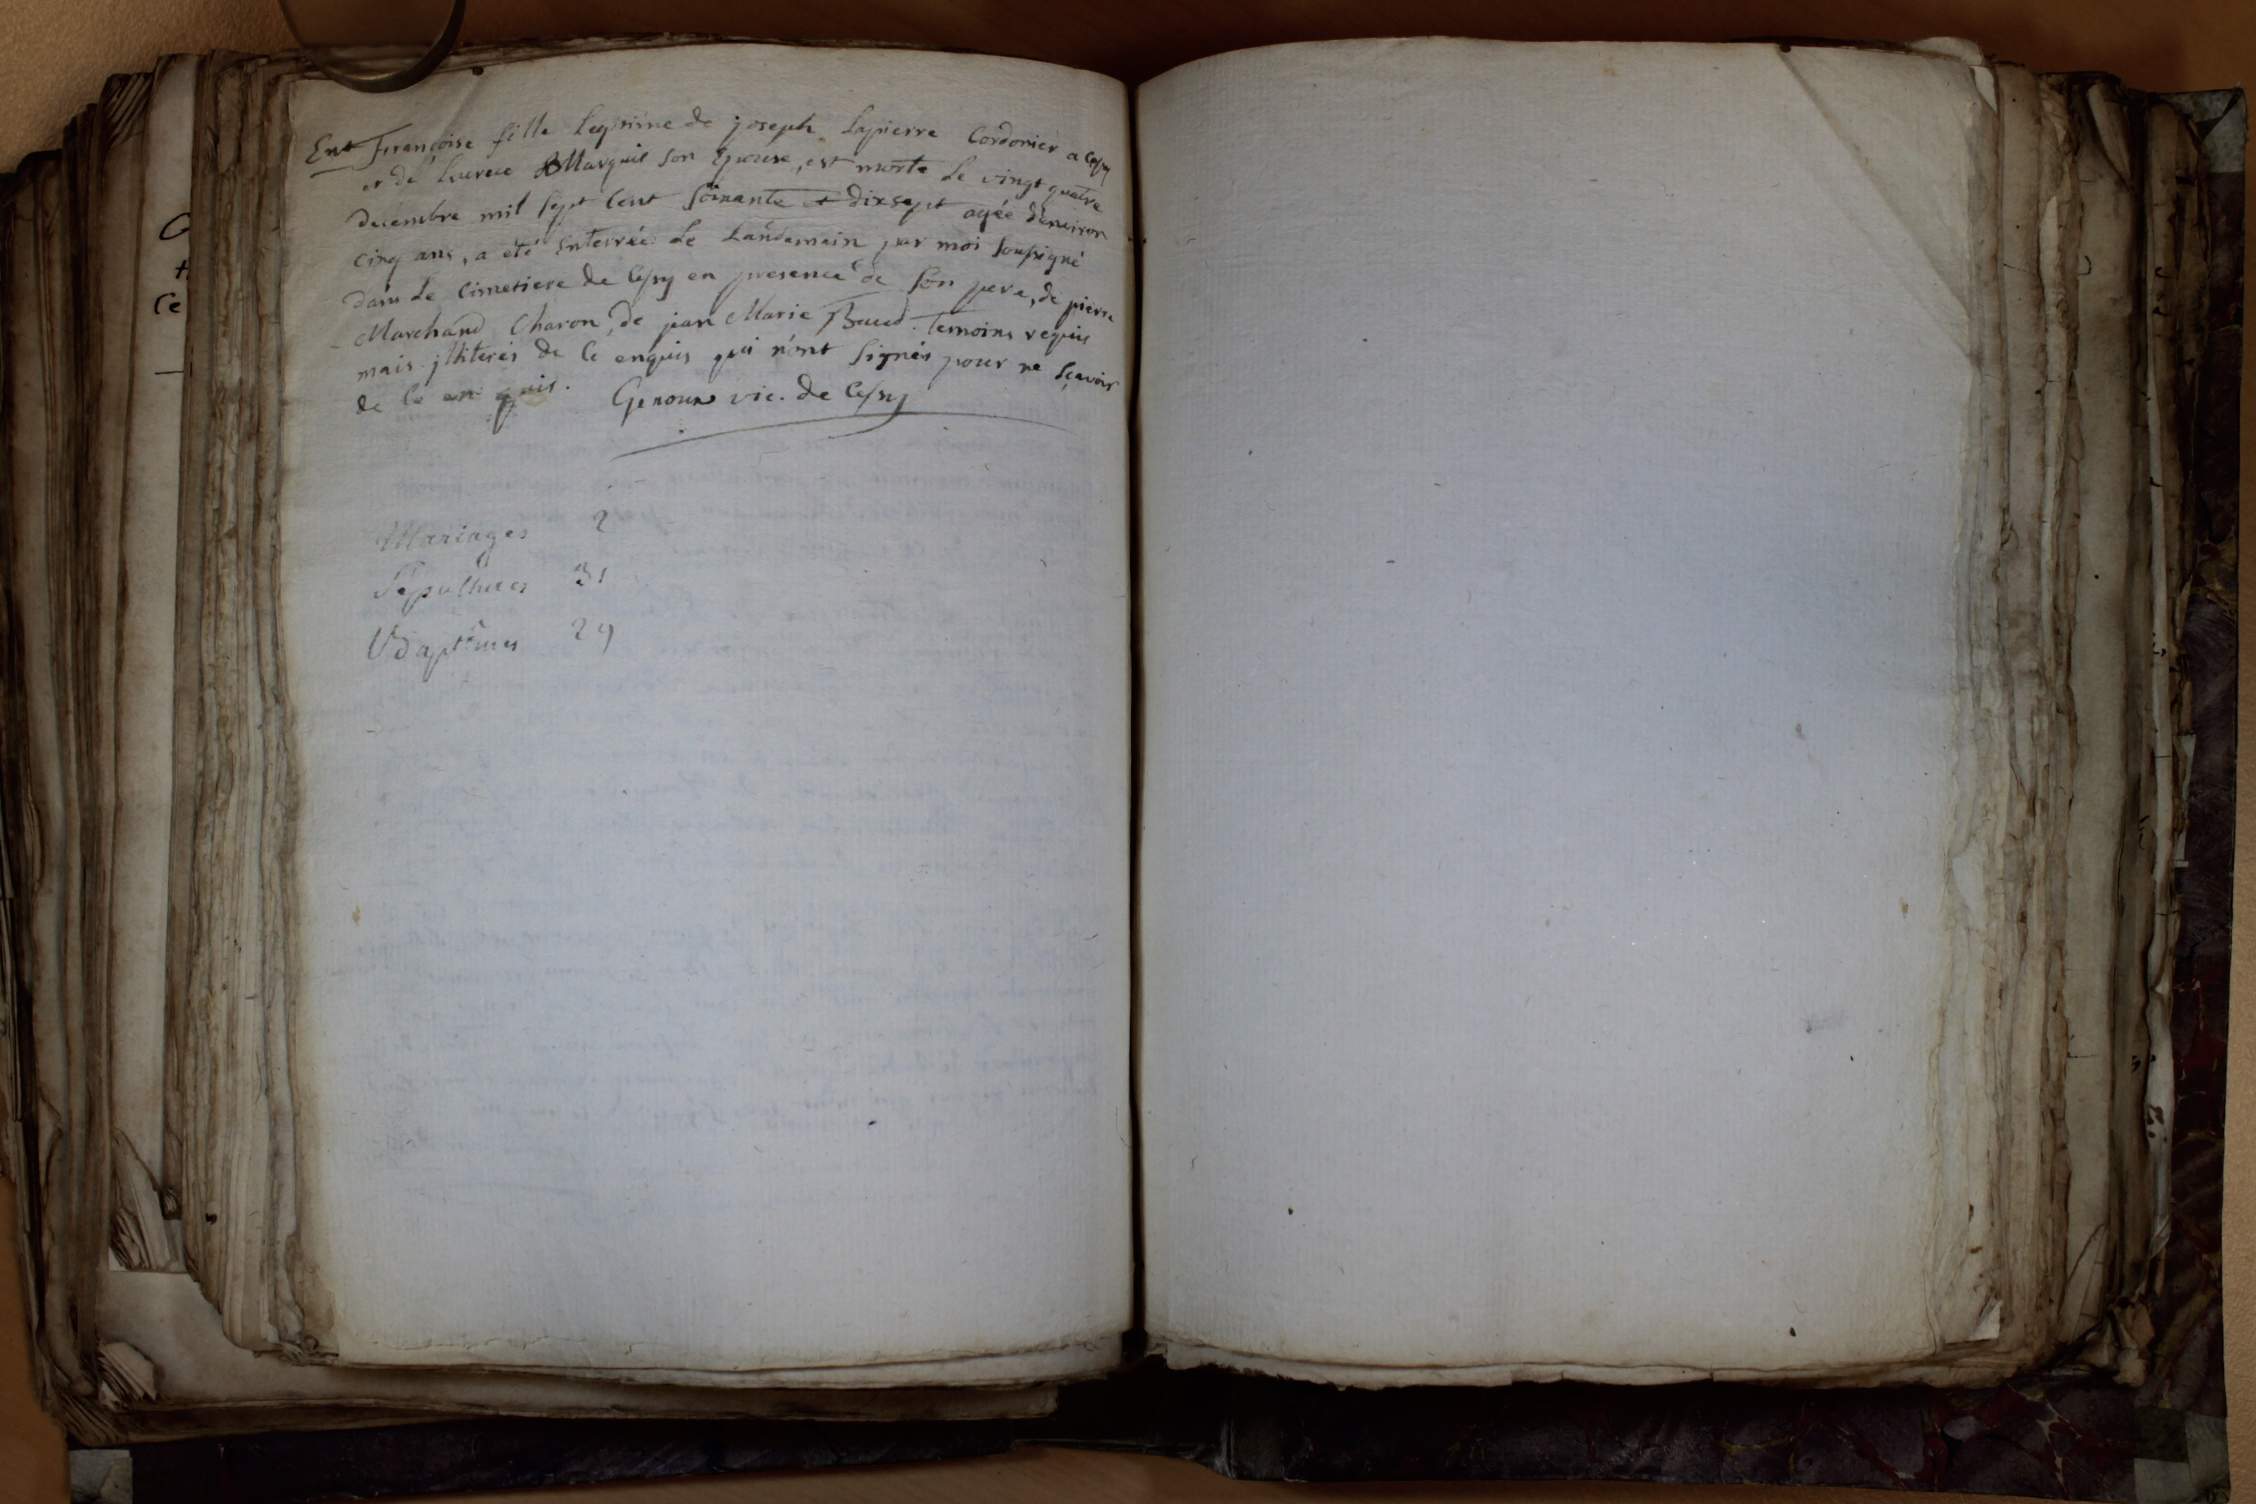 Ent Françoise fille Legitime de joseph Lapierre Cordonier a Cessy
et de Lucrece Marquis son Epouse, est morte Le vingt quatre
decembre mil sept Cent soixante et dixsept agée d'environ
cinq ans, a été Enterrée Le Landemain par moi soussigné
dans Le Cimetiere de Cessy en presence de son pere, de pierre
Marchand Charon, de jean Marie Baud. Temoins requis
mais jlliterés de ce enquis qui n'ont signés pour ne sçavoir
de ce en quis. Genoux vic. de Cessy
Mariages 2
Sepultures 31
Baptêmes 29